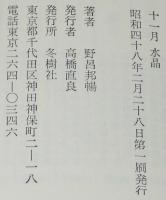 十一月 水晶
昭和四十八年二月二十八日第一刷発行
著者 野呂邦暢
発行者 高橋直良
発行所 冬樹社
東京都千代田区神田神保町二ー一八
電話東京二六四ー〇三四六